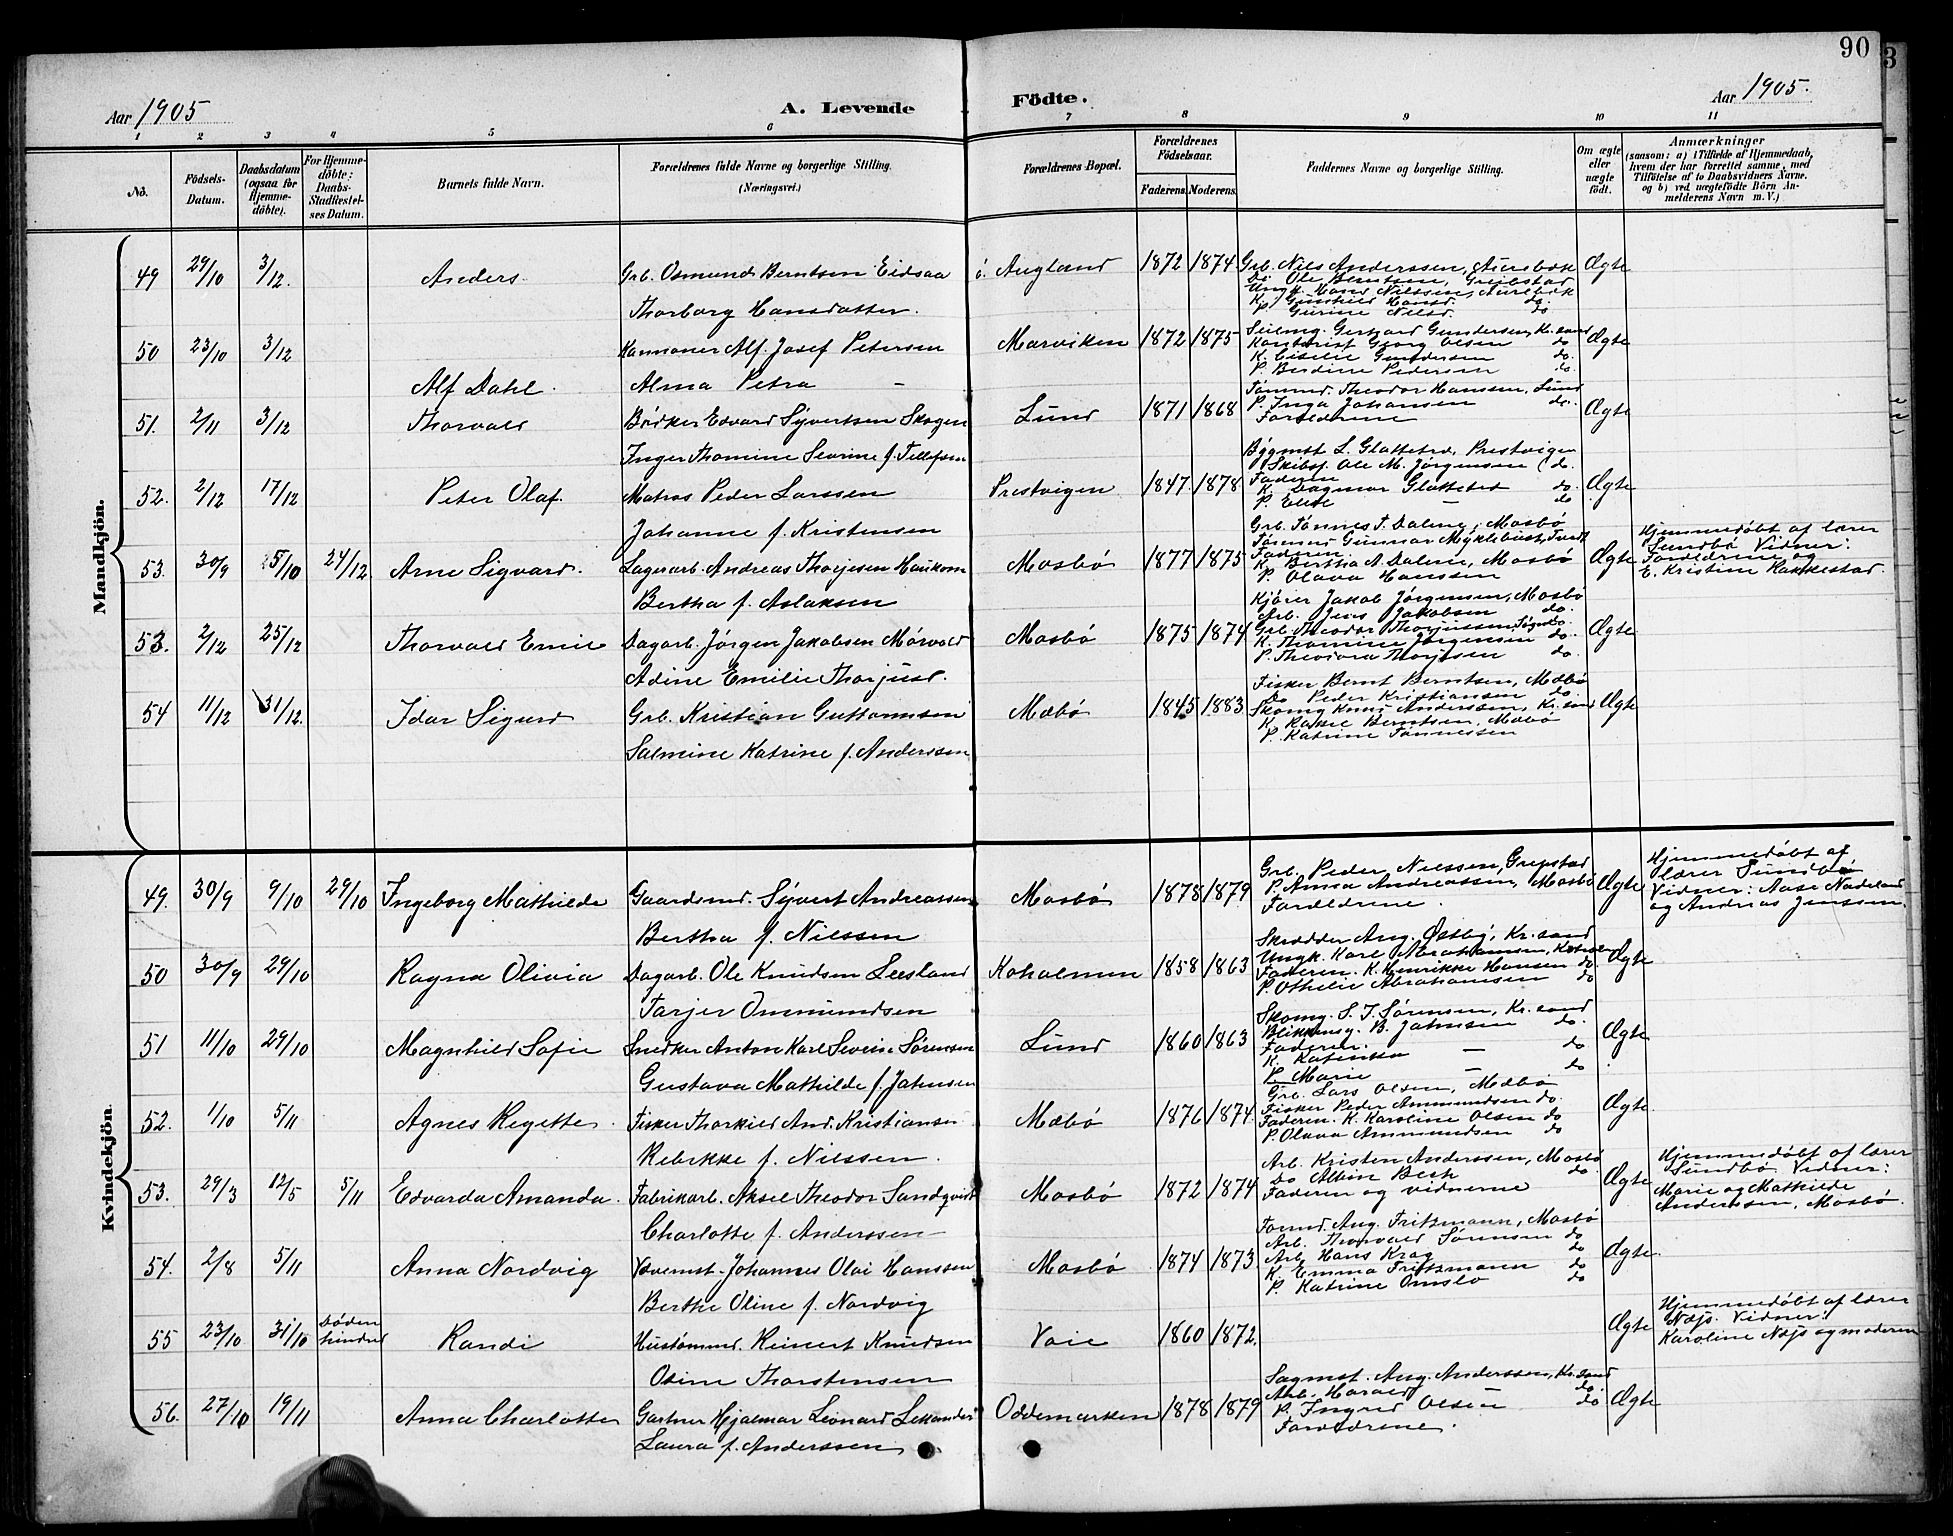 90
Aar 1905
A. Levende
Födte.
Aar 1905.
1 2 3 4 5 6 7 8 9 10 11
No.
Födsels-Datum.
Daabsdatum (ogsaa for Hjemme-döbte).
For Hjemme-döbte: Daabs-Stadfæstel-ses Datum.
Barnets fulde Navn.
Forældrenes fulde Navne og borgerlige Stilling.
(Næringsvei.)
Forældrenes Bopæl.
Forældrenes Fødselsaar.
Faderens. Moderens.
Faddernes Navne og borgerlige Stilling.
Om ægte eller uægte födt.
Anmærkninger
(saasom: a) i Tilfælde af Hjemmedaab,
hvem der har forrettet samme, med
Tilföielse af to Daabsvidners Navne.
og b) ved uægtefödte Börn An-
melderens Navn m.V.)
Mandkjön.
49 29/10 3/12. Anders. Grb. Osmund Berntsen Eidsaa
Thorborg Hansdatter.
Augland 1872 1874 Grb. Nils Anderssen, Aurebæk
Do. Ole Berntsen, Greibstad
Ungk. Hans Nilssen, Aurebæk
K. Gunhild Hansd. do.
P. Gurine Nilsd. do
Ægte
50 23/10 3/12 Alf Dahl. Alf. Josef Petersen
Alma Petra –
Marviken 1872 1875 Seilmg. Gerhard Gundersen, Kr.sand
Kontorist Georg Olsen do
K. Cisilie Gundersen do.
P. Berdine Pedersen do.
Ægte
51. 2/11 3/12 Thorvald Bødker Edvard Syvertsen Skogen
Inger Thomine Severine f. Tellefsen
Lund 1871 1868 Tømmd. Theodor Hanssen, Lund
P. Inga Johansen do.
Forældrene
Ægte
52. 2/12 17/12 Peter Olaf. Matros Peder Larssen
Johanne f. Kristensen
Prestvigen 1847 1878 Bygmst. L. Glattetre, Prestvigen
Skibsf. Ole M. Jørgensen do.
Faderen
K. Dagmar Glattetre do.
P. Elise – do
Ægte
53. 30/9 15/10 24/12 Arne Sigvard. Lagerarb. Andreas Thorjesen Haukom
Bertha f. Aslaksen
Mosbø 1877 1875 Grb. Tønnes T. Dalene, Mosbø
Gunnar Myklebust,
Faderen.
K. Bertha A. Dalene, Mosbø
P. Olava Hanssen
Ægte
Hjemmedøbt af lærer
Sundbø Vidner:
Forældrene og
E. Kristine Kakkestad.
53. 2/12 25/12 Thorvald Emil Dagarb. Jørgen Jakobsen Mørvold
Adine Emilie Thorjusd.
Mosbø 1875 1874 Kjører Jakob Jørgensen, Mosbø
Grb. Jens Jakobsen do.
Grb. Theodor Thorjussen, do.
K. Thomine Jørgensen do.
P. Theodora Thorjesen do.
Ægte
54 11/12 31/12. Idar Sigurd Grb. Kristian Guttormsen
Salmine Katrine f. Anderssen
Mæbø 1845 1883 Fisker Bernt Berntsen, Mæbø
Do Peder Kristiansen do.
Skomg Knud Anderssen, Kr.sand
K. Rakel Berntsen, Mæbø
P. Katrine Tønnessen
Ægte
Kvindekjön.
49. 30/9 9/10 29/10 Ingeborg Mathilde Gaardsmd. Syvert Andreassen
Bertha f. Nilssen
Mosbø 1878 1879 Grb. Peder Nielssen, Grepstad
P. Anna Andreassen, Mosbø
Forældrene.
Ægte
Hjemmedøbt af
lærer Sundbø
Vidner: Aase Nødeland
og Andreas Jenssen.
50 30/9 29/10 Ragna Olivia Dagarb. Ole Knudsen Leesland
Tarjer Ommundsen
Koholmen 1858 1863 Skrædder Aug. Østby, Kr.sand
Ungk. Karl Abrahamsen, Koholmen
Faderen. K. Henrikke Hansen do.
P. Othelie Abrahamsen do
Ægte
51 11/10 29/10 Magnhild Sofie Snedker Anton Karl Severin Sørensen
Gustava Mathilde f. Jahnsen
Lund 1860 1863 Skomg. S. T. Sørensen, Kr.sand
Blikkensg. B. Jahnsen do.
Faderen. do
K. Katinka – do
P. Marie –
Ægte
52. 1/10 5/11 Agnes Regette. Fisker Thorkild And. Kristiansen
Rebekke f. Nilssen.
Mæbø 1876 1874 Grb. Lars Olsen, Mæbø
Fisker Peder Ammundsen do.
Faderen. K. Karoline Olsen do
P. Olava Ammundsen do
Ægte.
53. 29/3 12/5 5/11 Edvarda Amanda. Fabrikarb. Aksel Theodor Sandqvist
Charlotte f. Anderssen
Mosbø 1872 1874 Arb. Kristen Anderssen, Mosbø
Do Albin Beck do.
Faderen og vidnerne
Ægte
Hjemmedøbt af lærer
Sundbø. Vidner:
Marie og Mathilde
Anderssen, Mosbø.
54. 2/8 5/11 Anna Nordvig Vævemst. Johannes Olai Hanssen
Berthe Oline f. Nordvig
Mosbø 1874 1873 Formd. Aug. Fritzmann, Mosbø
Arb. Thorvald Sørensen do
Arb. Hans Krag do
K. Emma Fritzmann do
P. Katrine Omslo do
Ægte.
55 23/10 31/10 Døden hindret Randi Hustømmd. Reinert Knudsen
Osine Thorstensen
Voie 1860 1872. Ægte
Hjemmedøbt af lærer
Næjs. Vidner:
Karoline Næjs og moderen
56. 27/10 19/11 Anna Charlotte Gartner Hjalmar Leonard Lekander
Laura f. Anderssen
Oddemarken 1878 1879 Sagmst. Aug. Anderssen, Kr.sand
Arb. Harald do.
P. Ingrid Olsen do
Forældrene.
Ægte